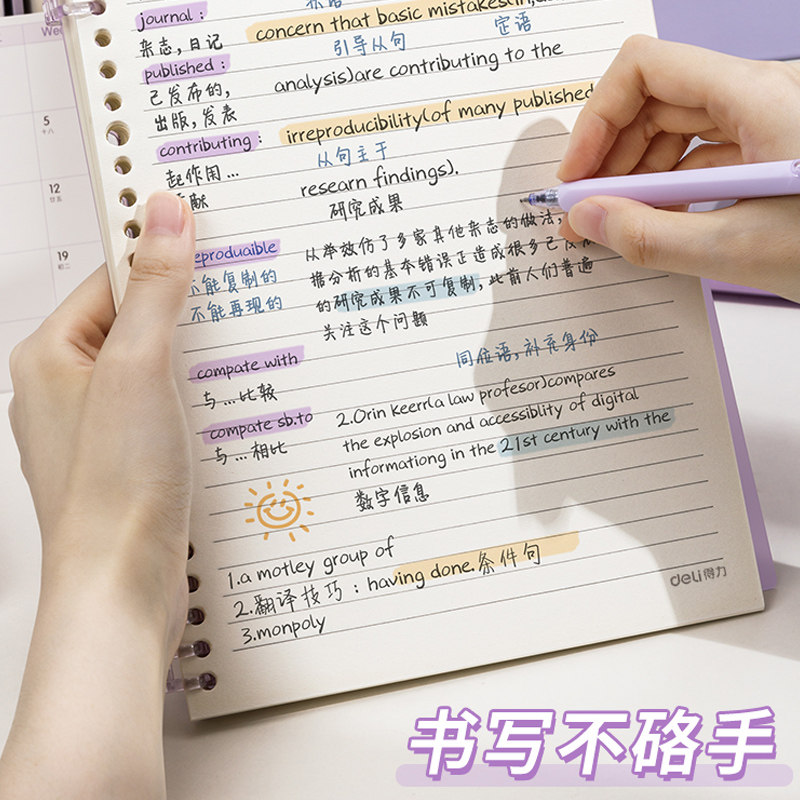 We
5
十八
12
廿五
19
初二
journal :
杂志, 日记
published :
已发布的,
出版, 发表
contributing :
起作用 ...
献
eproduaible
不能复制的
不能再现的
compate with
与 ... 比较
compate sb.to
与 ... 相比
concern that basic mistakes(in,
引导从句 定语
analysis)are contributing to the
irreproducibility(of many published
从句主于
researn findings).
研究成果
从举效仿了多家其他杂志的做法,
据分析的基本错误正造成很多已发
的研究成果不可复制, 此前人们普遍
关注这个问题
同位语, 补充身份
2.Orin keerr(a law profesor)compares
the explosion and accessiblity of digital
informationg in the 21st century with the
数字信息
1.a motley group of
2.翻译技巧 : having done.条件句
3.monpoly
deli得力
书写不硌手